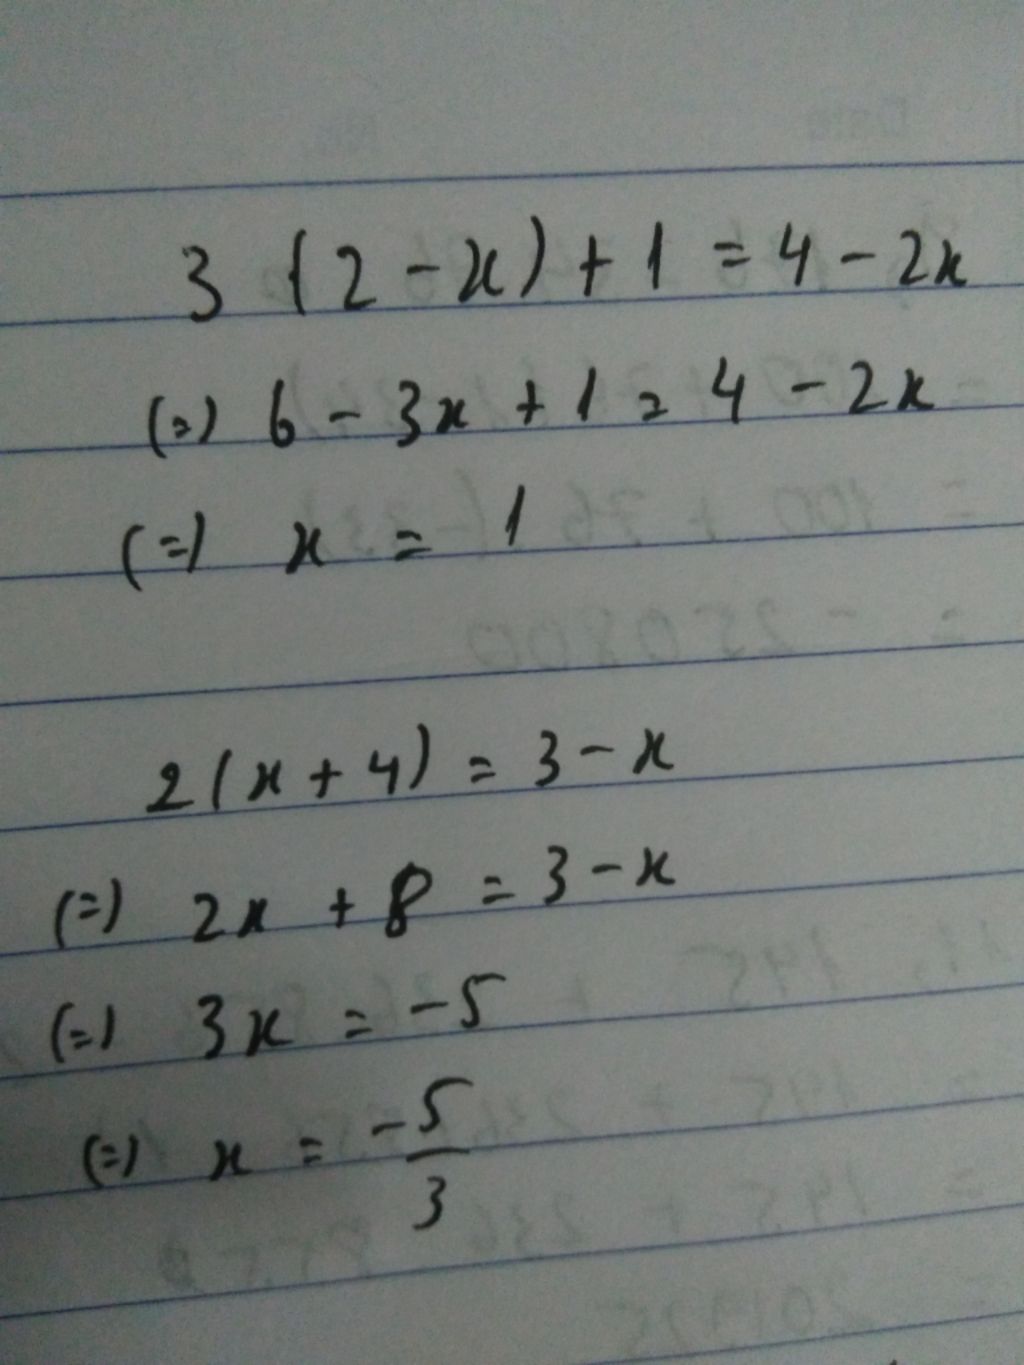 3 (2 - x) + 1 = 4 - 2x
(=) 6 - 3x + 1 = 4 - 2x
(=) x = 1
2(x + 4) = 3 - x
(=) 2x + 8 = 3 - x
(=) 3x = -5
(=) x = -5/3